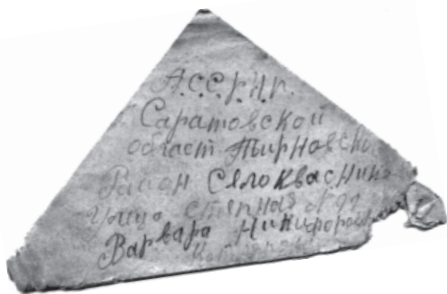 А.С.С.Р.Н.П.
Саратовской
област Тирновско
Район Село Кваснике
Улица Степная №
Варвара Никифоров